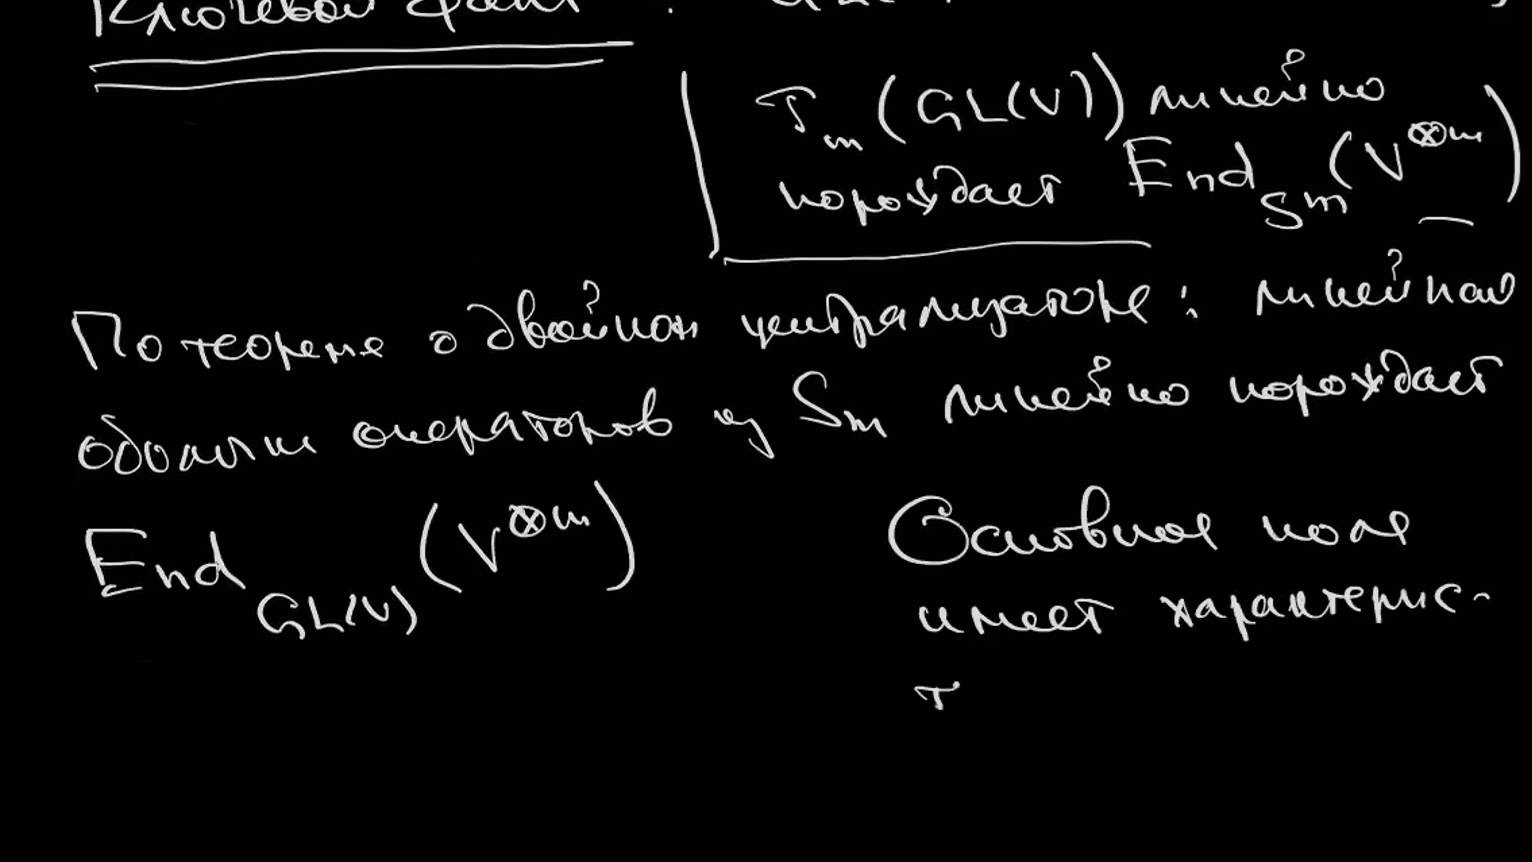 Ключевой факт :
T_m (GL(V)) линейно
порождает End_{S_m} (V^{⊗m})
По теореме о двойном централизаторе : линейная
оболочка операторов из S_m линейно порождает
End_{GL(V)} (V^{⊗m})
Основное поле
имеет характерис-
т